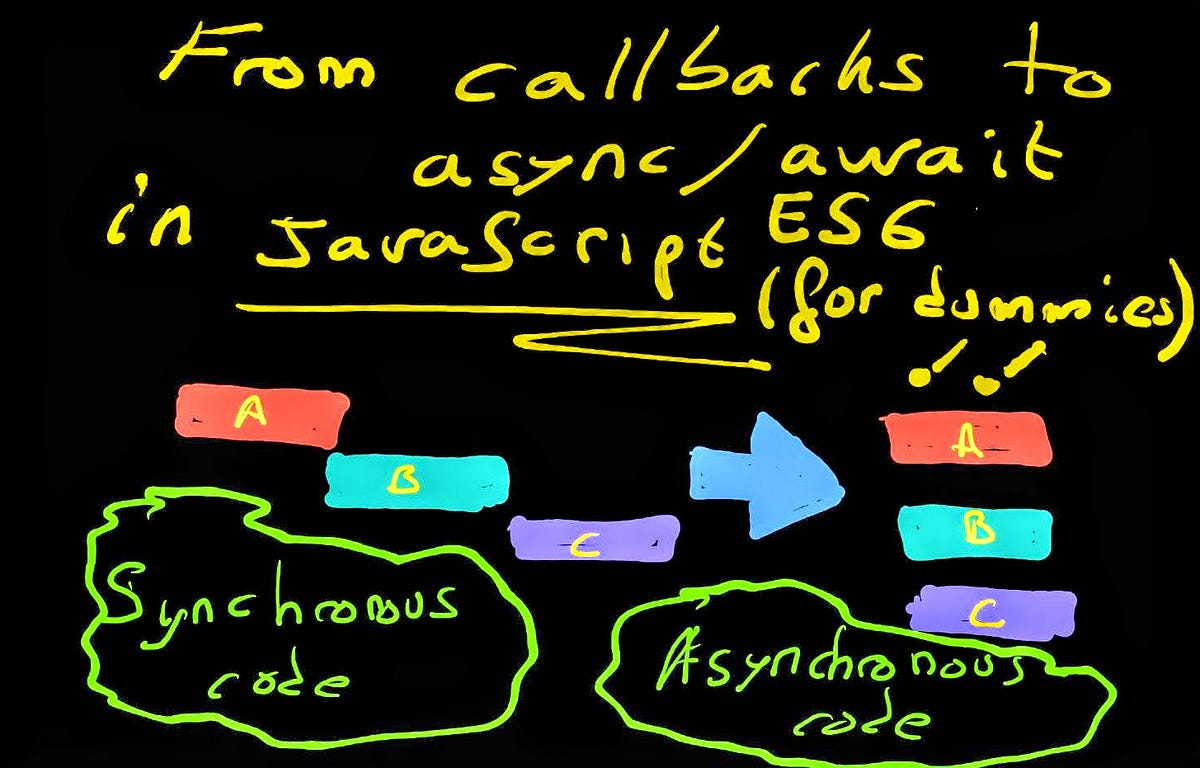 From callbacks to
async/await
in JavaScript ES6
(for dummies)
!!
A
B
C
A
B
C
Synchronous
code
Asynchronous
code